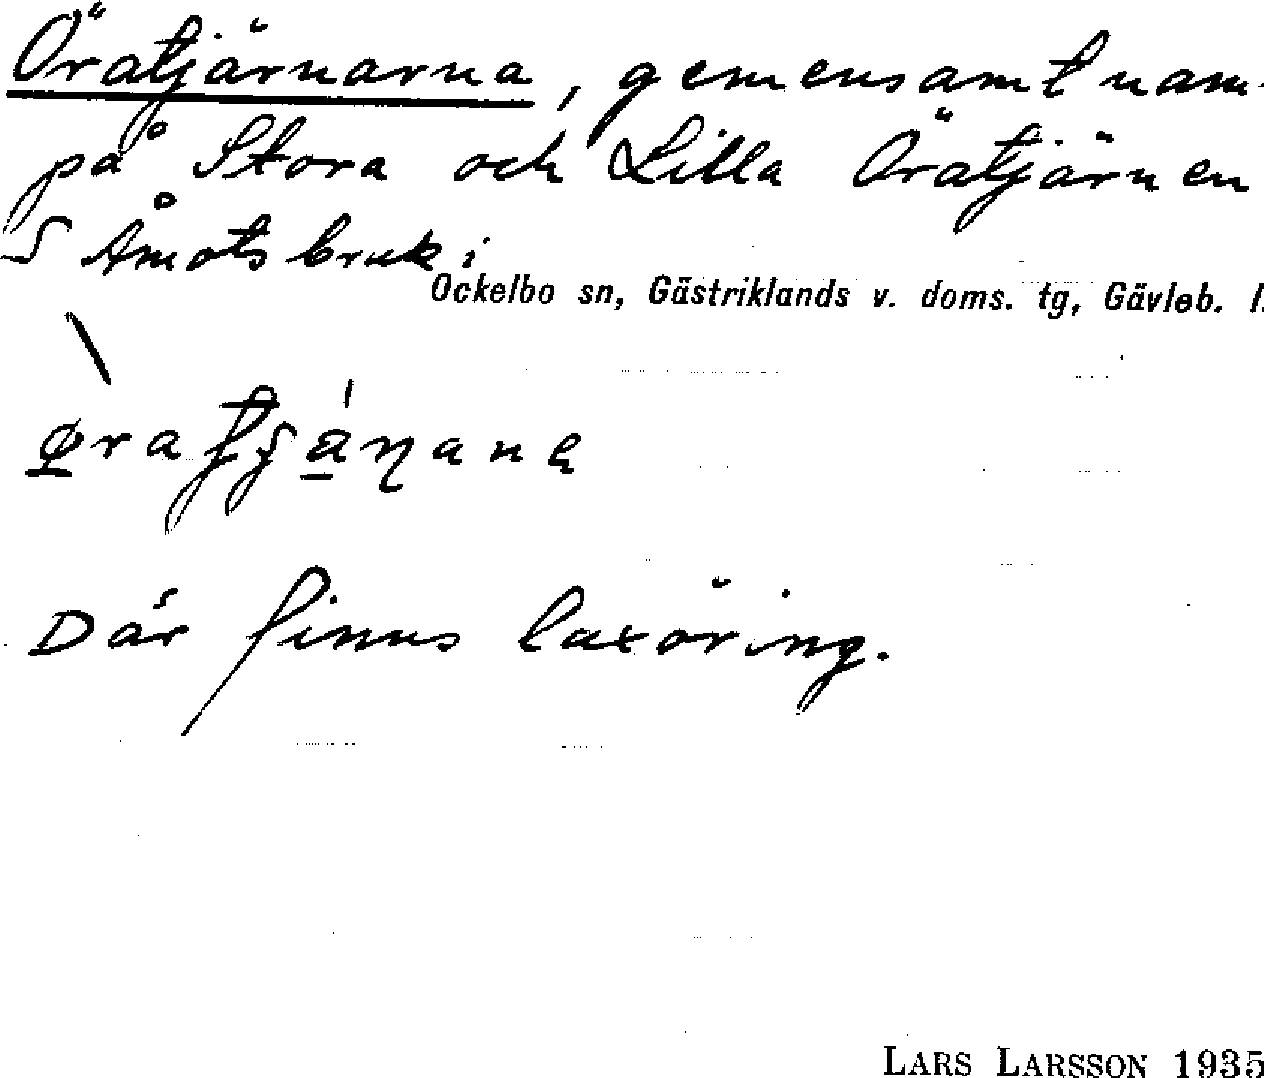 Öratjärnarna, gemensamt nam
på Stora och Lilla Öratjärnen
S Åmots bruk i
Ockelbo sn, Gästriklands v. doms. tg, Gävleb. l.
Där finns laxöring.
LARS LARSSON 1935